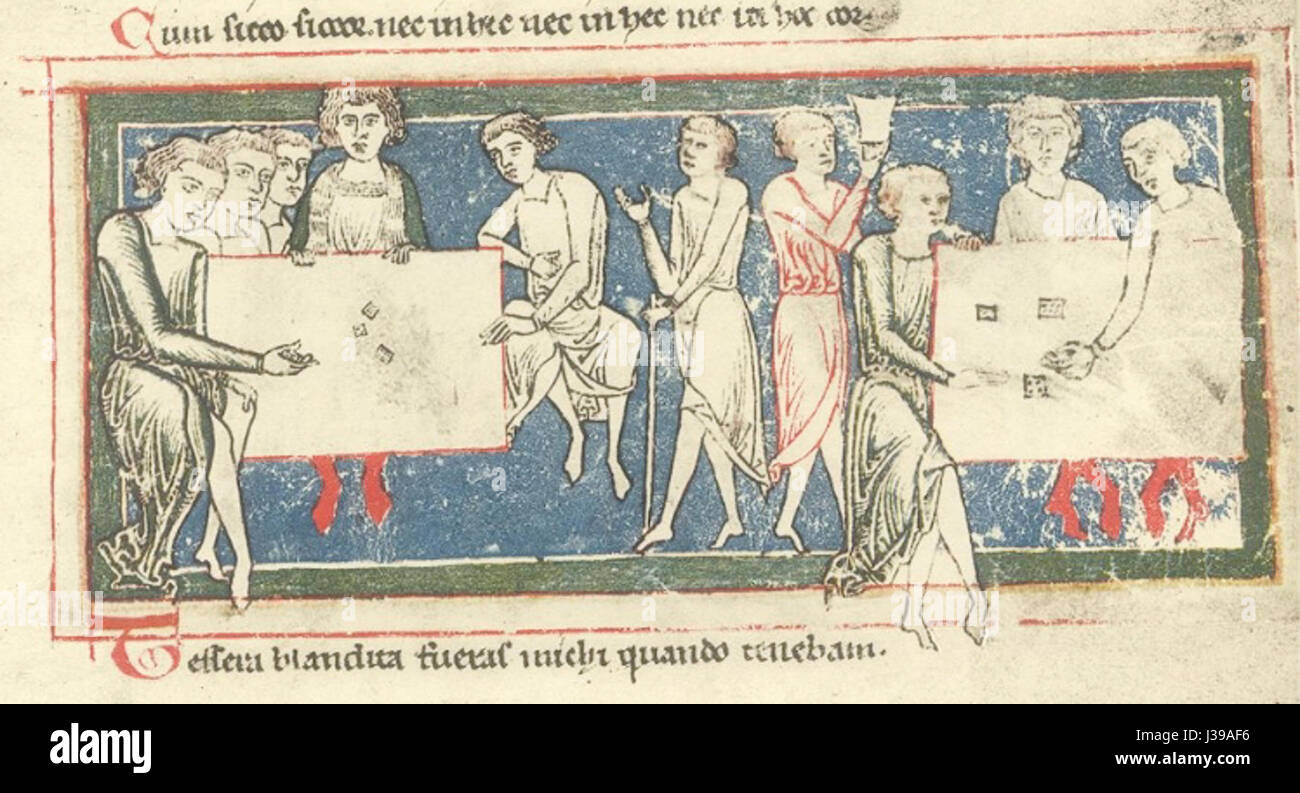 Cum sicco siccor. nec in hec nec in hec nec in hoc cor.
Tessera blandita fueras michi quando tenebam.
alamy
alamy
Image ID: J39AF6
www.alamy.com